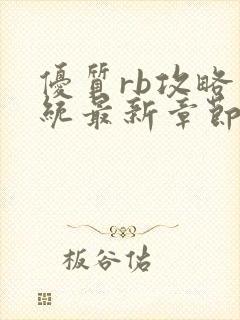 優質rb攻略
統最新章節
板谷佑